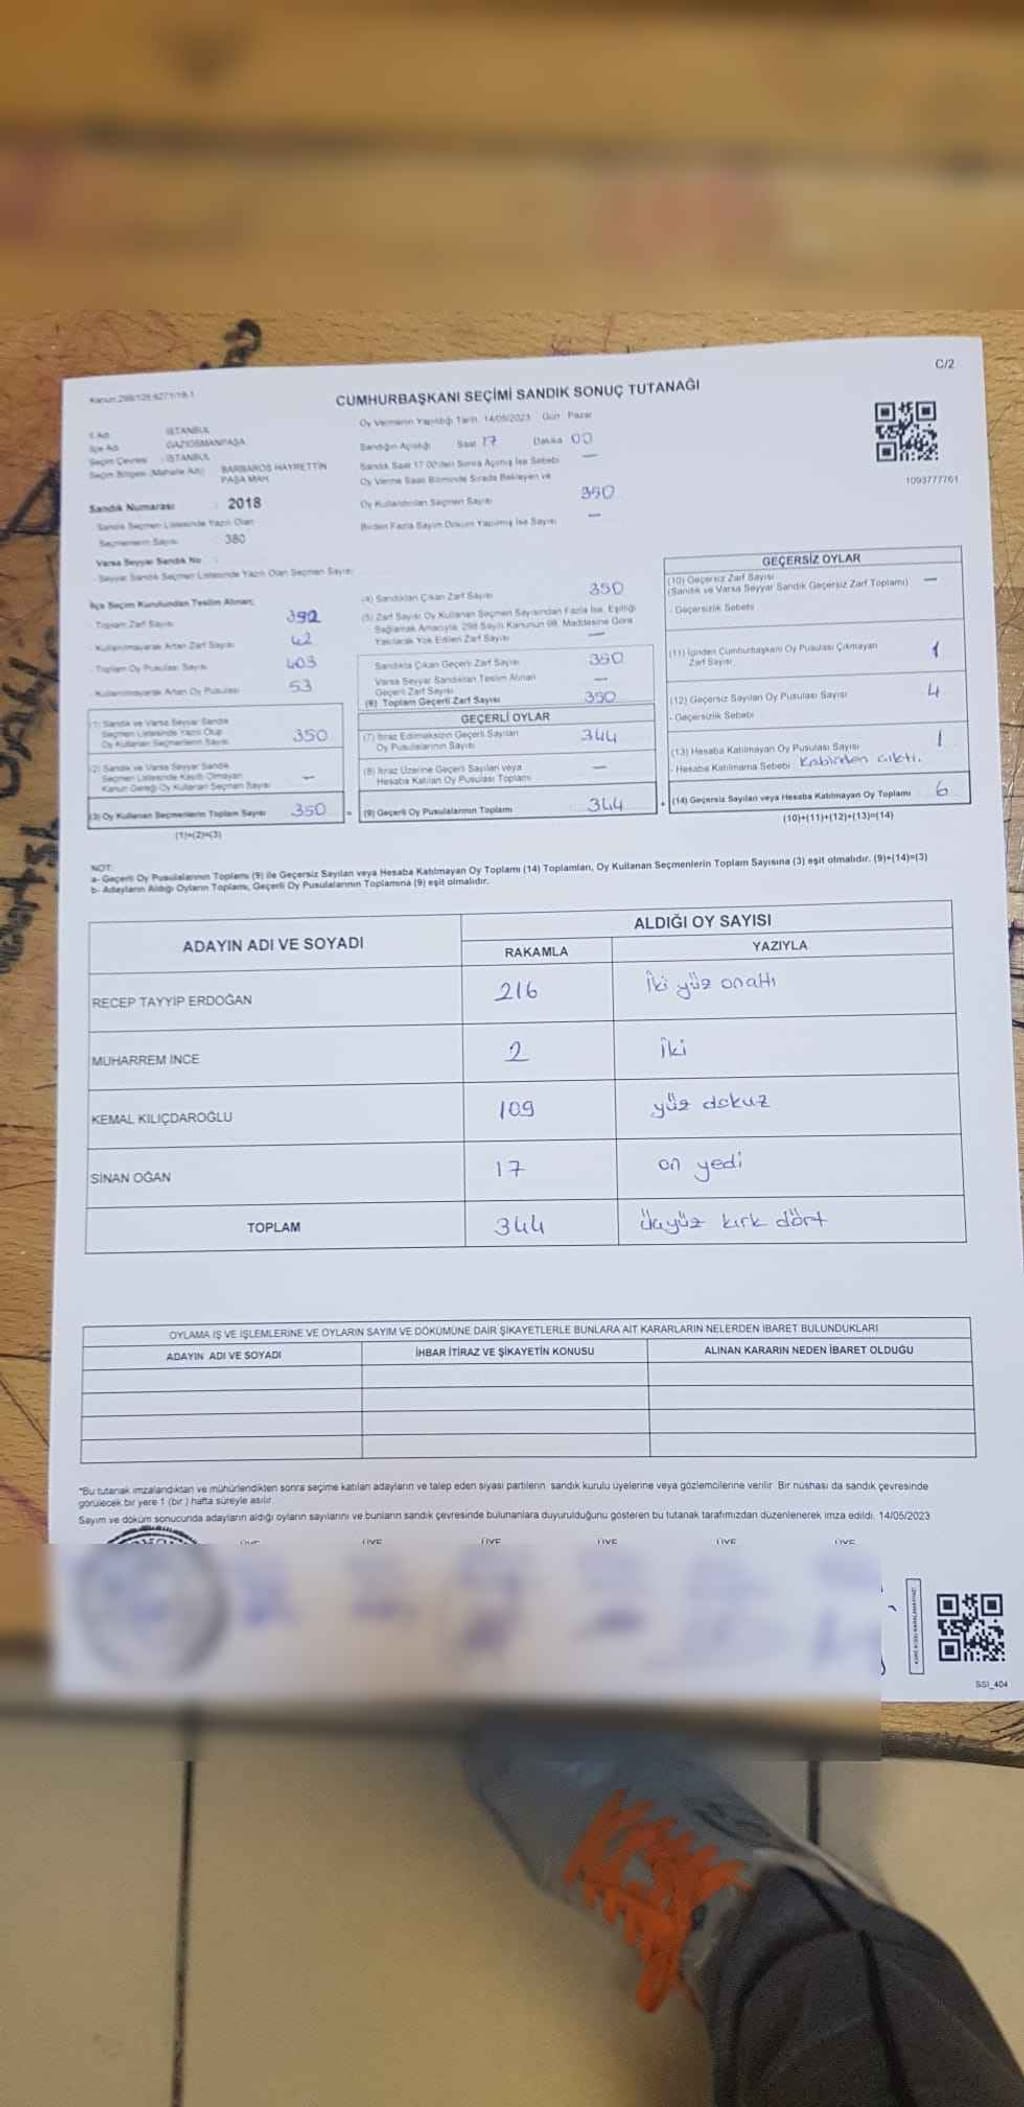 C/2
Kanun:298/105 6271/19-1
CUMHURBAŞKANI SEÇİMİ SANDIK SONUÇ TUTANAĞI
Oy Vermenin Yapıldığı Tarih 14/05/2023 Gün: Pazar
İl Adı İSTANBUL
İlçe Adı GAZİOSMANPAŞA
Seçim Çevresi İSTANBUL
Seçim Bölgesi (Mahalle Adı) BARBAROS HAYRETTİN PAŞA MAH.
Sandığın Açıldığı Saat 17 Dakika 00
Sandık Saat 17.00'den Sonra Açılmış İse Sebebi —
Oy Verme Saati Bitiminde Sırada Bekleyen ve
Oy Kullandırılan Seçmen Sayısı 350
Birden Fazla Sayım Döküm Yapılmış İse Sayısı —
1093777761
Sandık Numarası : 2018
Sandık Seçmen Listesinde Yazılı Olan
Seçmenlerin Sayısı : 380
Varsa Seyyar Sandık No :
Seyyar Sandık Seçmen Listesinde Yazılı Olan Seçmen Sayısı:
İlçe Seçim Kurulundan Teslim Alınan;
- Toplam Zarf Sayısı 392
- Kullanılmayarak Artan Zarf Sayısı 42
- Toplam Oy Pusulası Sayısı 403
- Kullanılmayarak Artan Oy Pusulası 53
(1) Sandık ve Varsa Seyyar Sandık
Seçmen Listesinde Yazılı Olup
Oy Kullanan Seçmenlerin Sayısı 350
(2) Sandık ve Varsa Seyyar Sandık
Seçmen Listesinde Kayıtlı Olmayan
Kanun Gereği Oy Kullanan Seçmen Sayısı —
(3) Oy Kullanan Seçmenlerin Toplam Sayısı 350
(1)+(2)=(3)
(4) Sandıktan Çıkan Zarf Sayısı 350
(5) Zarf Sayısı Oy Kullanan Seçmen Sayısından Fazla İse, Eşitliği
Sağlamak Amacıyla, 298 Sayılı Kanunun 98. Maddesine Göre
Yakılarak Yok Edilen Zarf Sayısı —
Sandıkta Çıkan Geçerli Zarf Sayısı 350
Varsa Seyyar Sandıktan Teslim Alınan
Geçerli Zarf Sayısı —
(6) Toplam Geçerli Zarf Sayısı 350
GEÇERLİ OYLAR
(7) İtiraz Edilmeksizin Geçerli Sayılan
Oy Pusulalarının Sayısı 344
(8) İtiraz Üzerine Geçerli Sayılan veya
Hesaba Katılan Oy Pusulası Toplamı —
= (9) Geçerli Oy Pusulalarının Toplamı 344
GEÇERSİZ OYLAR
(10) Geçersiz Zarf Sayısı
(Sandık ve Varsa Seyyar Sandık Geçersiz Zarf Toplamı) —
- Geçersizlik Sebebi
(11) İçinden Cumhurbaşkanı Oy Pusulası Çıkmayan
Zarf Sayısı 1
(12) Geçersiz Sayılan Oy Pusulası Sayısı 4
- Geçersizlik Sebebi
(13) Hesaba Katılmayan Oy Pusulası Sayısı 1
- Hesaba Katılmama Sebebi: Kabinden çıktı.
+ (14) Geçersiz Sayılan veya Hesaba Katılmayan Oy Toplamı 6
(10)+(11)+(12)+(13)=(14)
NOT:
a- Geçerli Oy Pusulalarının Toplamı (9) ile Geçersiz Sayılan veya Hesaba Katılmayan Oy Toplamı (14) Toplamları, Oy Kullanan Seçmenlerin Toplam Sayısına (3) eşit olmalıdır. (9)+(14)=(3)
b- Adayların Aldığı Oyların Toplamı, Geçerli Oy Pusulalarının Toplamına (9) eşit olmalıdır.
ADAYIN ADI VE SOYADI
ALDIĞI OY SAYISI
RAKAMLA YAZIYLA
RECEP TAYYİP ERDOĞAN 216 İki yüz onaltı
MUHARREM İNCE 2 İki
KEMAL KILIÇDAROĞLU 109 yüz dokuz
SİNAN OĞAN 17 on yedi
TOPLAM 344 Üçyüz kırk dört
OYLAMA İŞ VE İŞLEMLERİNE VE OYLARIN SAYIM VE DÖKÜMÜNE DAİR ŞİKAYETLERLE BUNLARA AİT KARARLARIN NELERDEN İBARET BULUNDUKLARI
ADAYIN ADI VE SOYADI İHBAR İTİRAZ VE ŞİKAYETİN KONUSU ALINAN KARARIN NEDEN İBARET OLDUĞU
"Bu tutanak imzalandıktan ve mühürlendikten sonra seçime katılan adayların ve talep eden siyasi partilerin sandık kurulu üyelerine veya gözlemcilerine verilir. Bir nüshası da sandık çevresinde
görülecek bir yere 1 (bir) hafta süreyle asılır.
Sayım ve döküm sonucunda adayların aldığı oyların sayılarını ve bunların sandık çevresinde bulunanlara duyurulduğunu gösteren bu tutanak tarafımızdan düzenlenerek imza edildi. 14/05/2023
ÜYE ÜYE ÜYE ÜYE ÜYE ÜYE
SSI_404